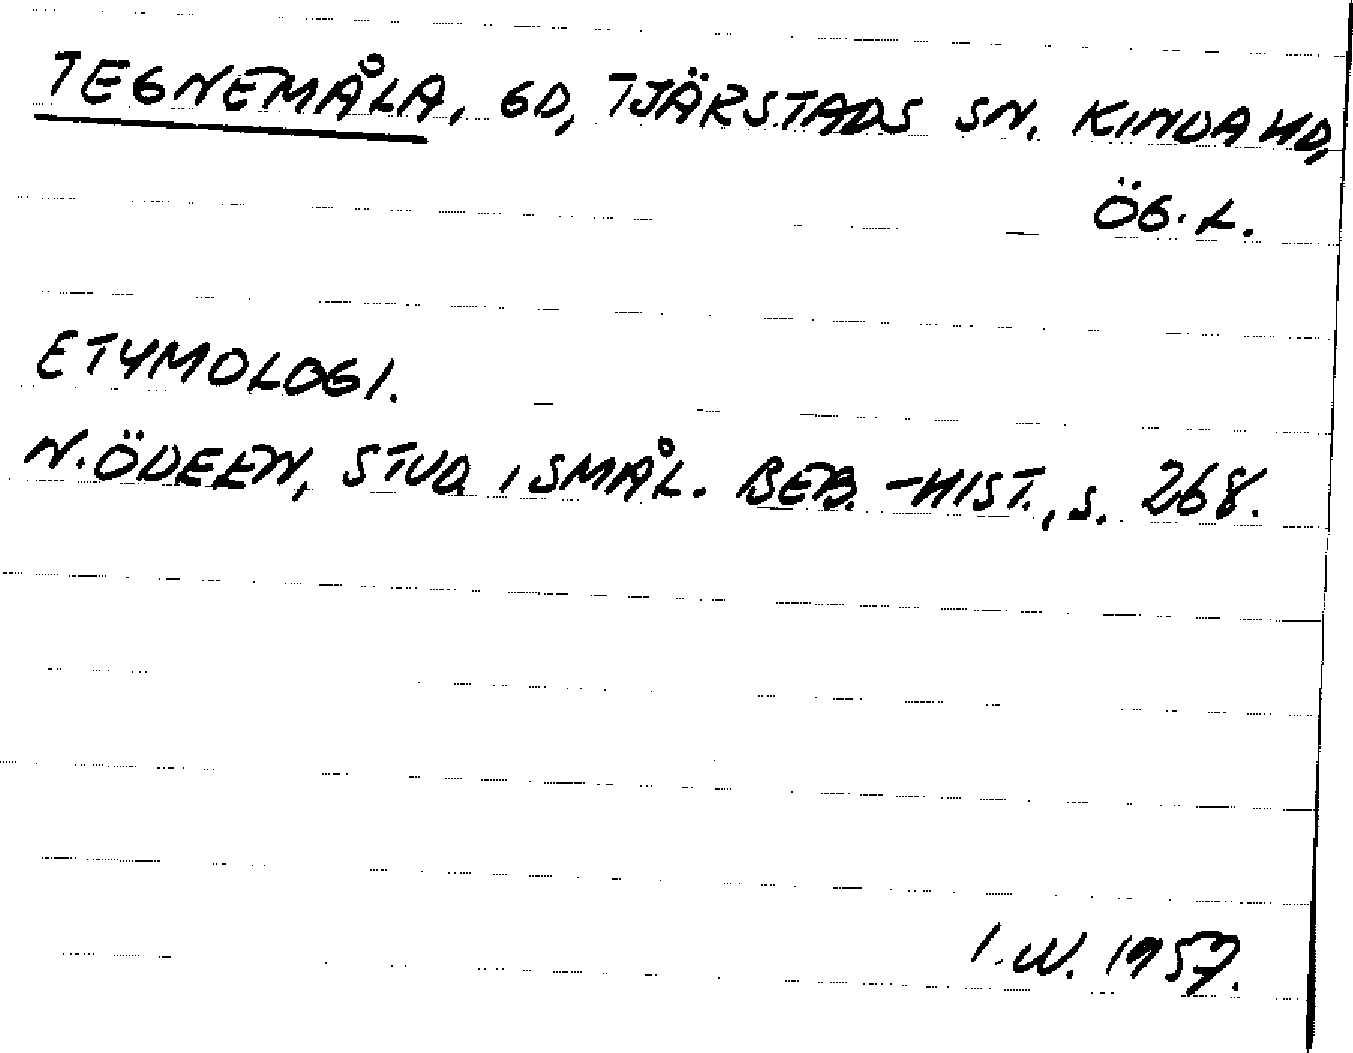 TEGNEMÅLA, GD, TJÄRSTADS SN. KINDA HD,
ÖG. L.
ETYMOLOGI.
N. ÖDEEN, STUD I SMÅL. BEB. -HIST., S. 268.
I. W. 1957.